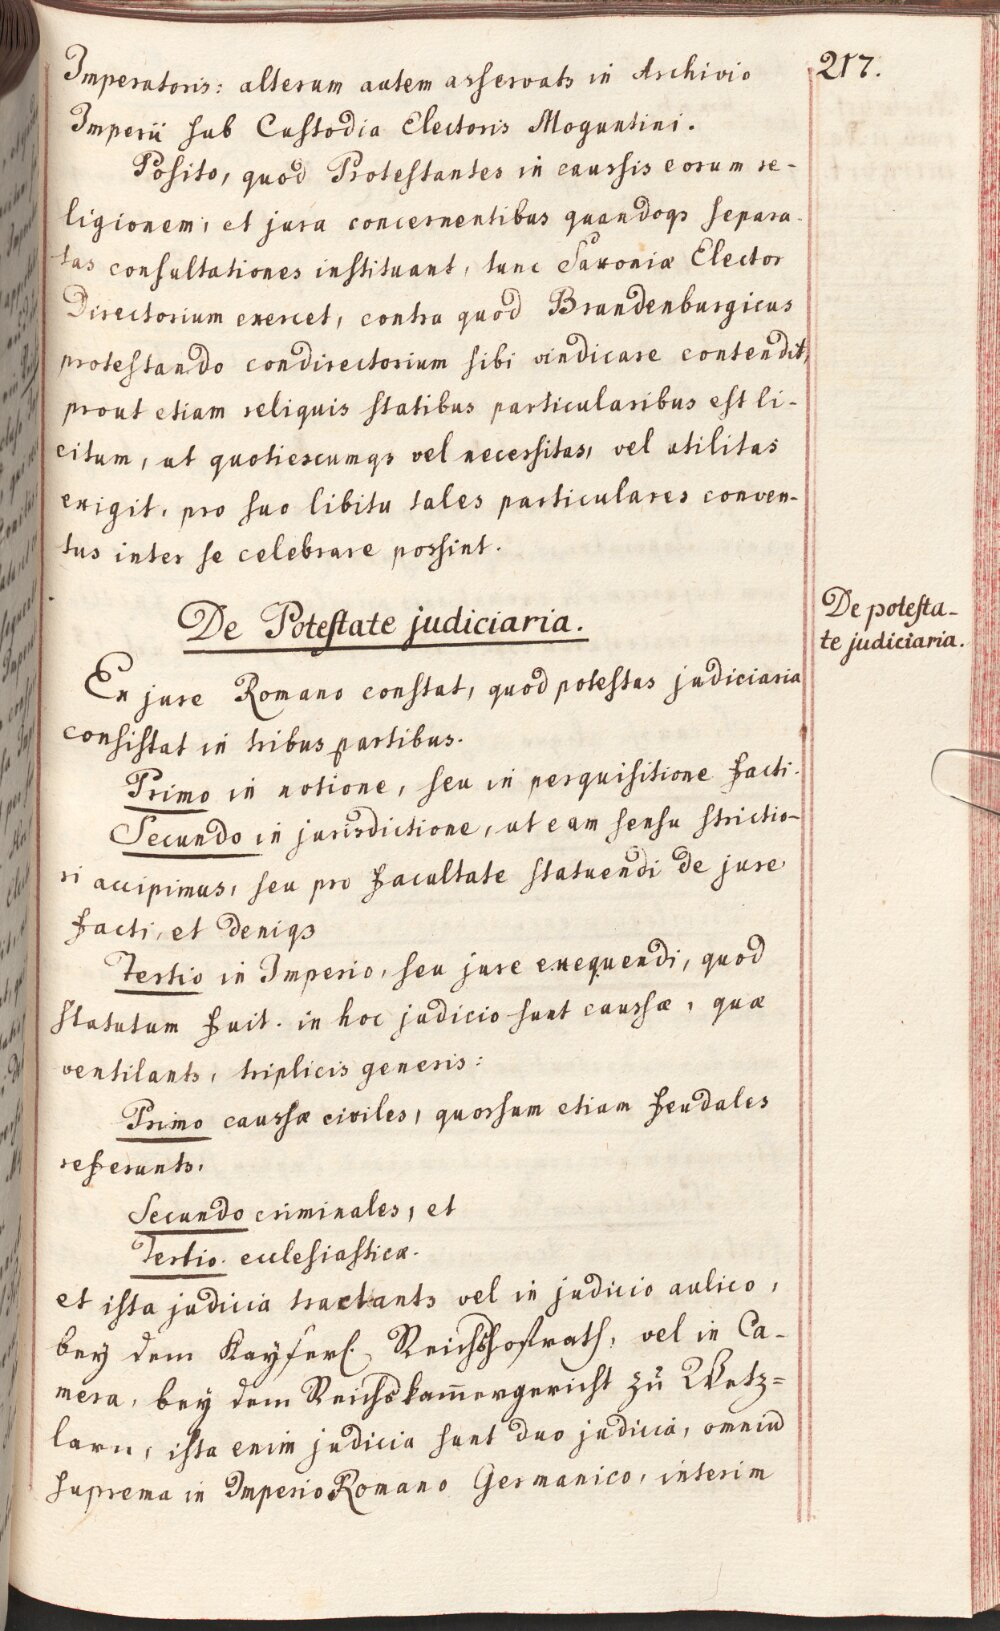 217.
Imperatoris: alterum autem asservats in Archivio
Imperii sub Custodia Electoris Moguntini.
Posito, quod Protestantes in caussis eorum re-
ligionem, et jura concernentibus quandoqs separa-
tas consultationes instituant, tunc Saxoniæ Elector
Directorium exercet, contra quod Brandenburgicus
protestando condirectorium sibi vindicare contendit,
prout etiam reliquis statibus particularibus est li-
citum, ut quotiescumqs vel necessitas, vel utilitas
exigit, pro suo libitu tales particulares conven-
tus inter se celebrare possint.
De Potestate judiciaria.
De potesta-
te judiciaria.
Ex jure Romano constat, quod potestas judiciaria
consistat in tribus partibus.
Primo in notione, seu in perquisitione facti.
Secundo in jurisdictione, ut eam sensu strictio-
ri accipimus, seu pro facultate statuendi de jure
facti, et deniqs
Tertio in Imperio, seu jure exequendi, quod
statutum fuit. in hoc judicio sunt caussæ, quæ
ventilants, triplicis generis:
Primo caussæ civiles, quorsum etiam feudales
referunts,
Secundo criminales, et
Tertio. ecclesiasticæ.
et ista judicia tractants vel in judicio aulico,
bey dem Kayserl. Reichshofrath, vel in Ca-
mera, bey dem Reichskam̄ergericht zu Wetz=
larn, ista enim judicia sunt duo judicia, omniū
suprema in Imperio Romano Germanico, interim